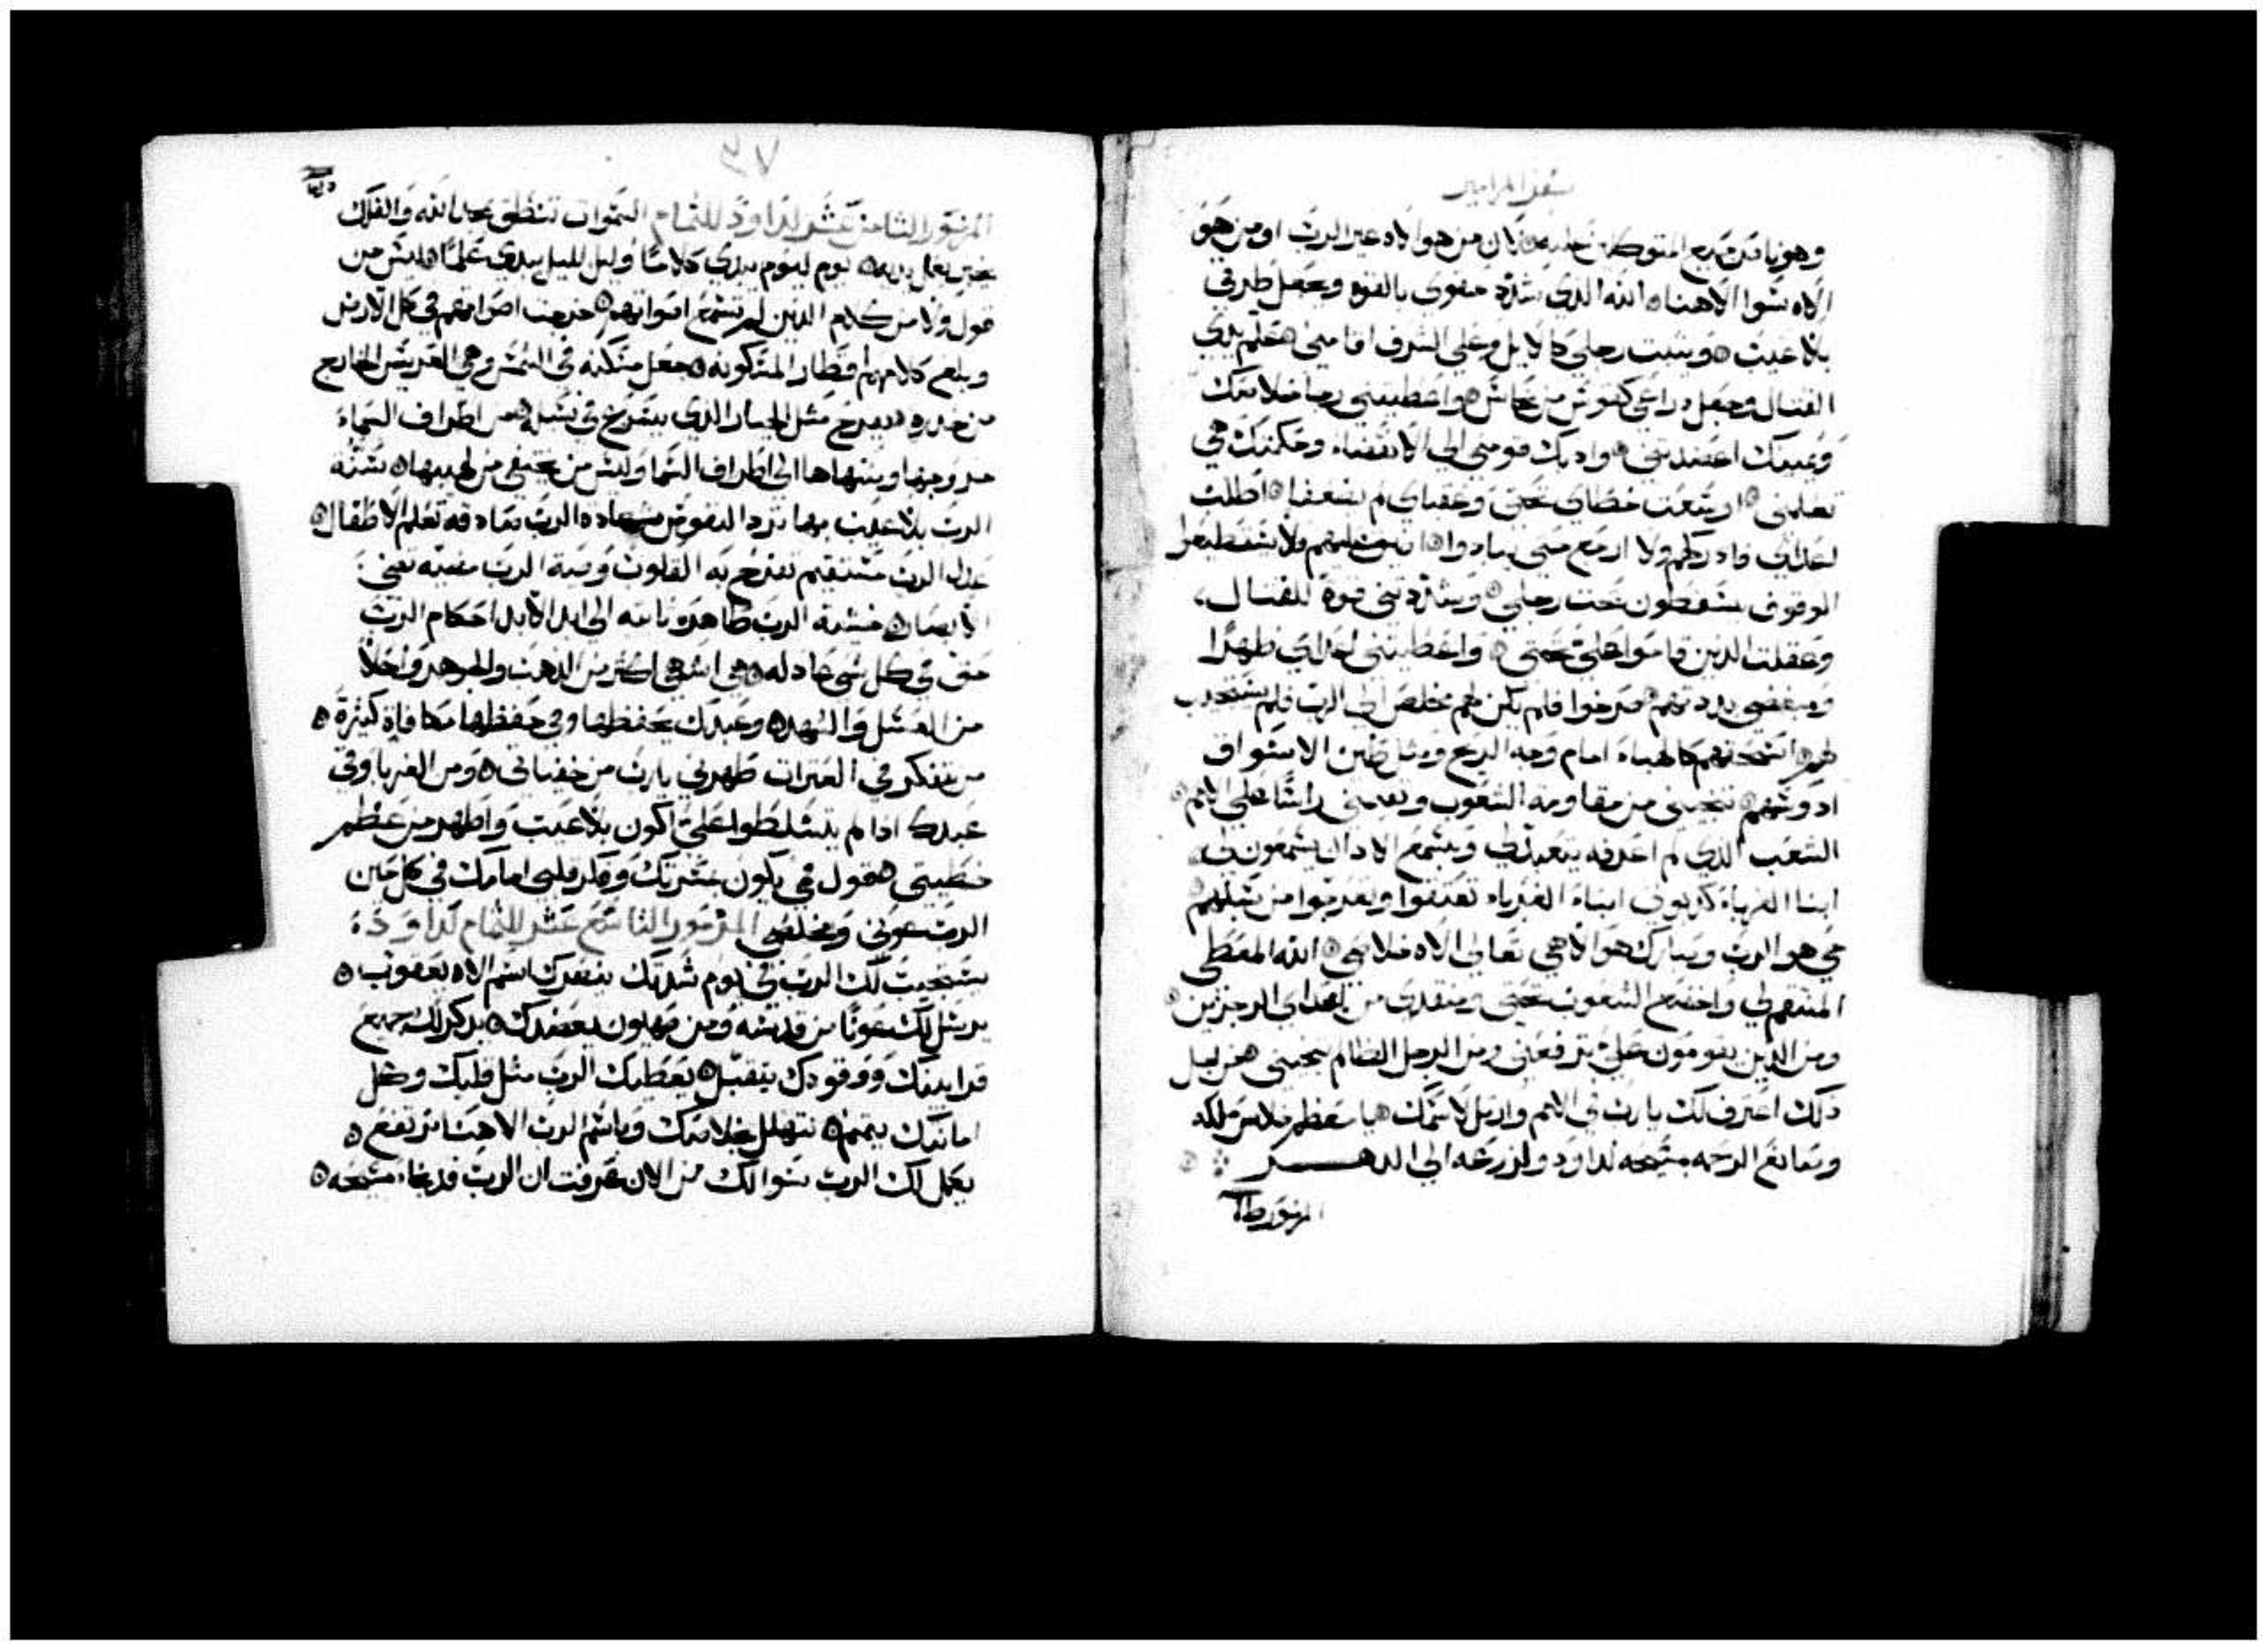 سفر المزامير
وهو ناصر جميع المتوكلين عليه لان من هو الاه غير الرب او من هو
الاه سوا الاهنا الله الذي شدد حقوي بالقوه وجعل طرقي
بلا عيب ويثبت رجلي كالايل وعلى المشرف اقامني علم يدي
القتال وجعل دراعي كقوس من نحاس واعطيتني رجا خلاصك
ويمينك اعضدتني وادبك قومني الي الانقضاء وحكمتك هي
تعلمني اوسعت خطاي تحتي وعقباي لم يضعفا اطلب
اعداي فادركهم ولا ارجع حتى يبادوا اهينهم ولا يستطيعوا
الوقوف يسقطون تحت رجلي وشددتني قوة للقتال
وعقلت الذين قاموا علي تحتي واعطيتني اعداي ظهرا
ومبغضي بددتهم صرخوا فلم يكن لهم مخلص الي الرب فلم يستجب
لهم اسحقهم كالهباء امام وجه الريح ومثل طين الاسواق
ادوسهم تنجيني من مقاومة الشعوب وتقيمني راسا على الامم
الشعب الذي لم اعرفه يتعبد لي وبسمع الادان يسمعون لي
ابنا الغرباء كدبوني ابناء الغرباء تعتقوا وتعرجوا من سبلهم
حي هو الرب ومبارك هو الاهي تعالى الاه خلاصي الله المعطي
المنتقم لي واخضع الشعوب تحتي ومنقدي من اعداي الرجزين
ومن الذين يقومون علي ترفعني ومن الرجل الظالم تنجيني من اجل
دلك اعترف لك يا رب في الامم وارتل لاسمك يا معظم خلاص ملكه
وصانع الرحمه بمسيحه لداود ولزرعه الي الدهر
المزمور
٣٧
المزمور الثامن عشر لداود للتمام السموات تنطق بمجد الله والفلك
يخبر بعمل يديه يوم ليوم يبدي كلاما وليل لليل يبدي علما ليس من
قول ولا من كلام الذين لم تسمع اصواتهم خرجت اصواتهم في كل الارض
وبلغ كلامهم اقطار المسكونه جعل مسكنه في الشمس وهي العريس الخارج
من خدره يفرح مثل الجبار الذي يفرح في سبله من اطراف السماء
خروجها ومنتهاها الى اطراف السما وليس من يختفي من لهيبها سنة
الرب بلا عيب بها ترد النفوس شهادة الرب صادقه تعلم الاطفال
عدل الرب مستقيم تفرح به القلوب وصية الرب مضيه تضي
الابصار خشية الرب طاهره ثابته الى ابد الابد احكام الرب
حق في كل شي عادله هي اشهى اكثر من الذهب والجوهر واحلا
من العسل والشهد وعبدك يحفظها وفي حفظها مكافاة كثيرة
من يتفكر في العترات طهرني يا رب من خفياتي ومن الغربا وقي
عبدك ادا لم يتسلطوا علي اكون بلا عيب واطهر من عظم
خطيتي هقول في يكون بمسرتك وفكر قلبي امامك في كل حين
الرب عوني ومخلصي المزمور التاسع عشر للتمام لداود
يستجيب لك الرب في يوم شدتك ينصرك اسم الاه يعقوب
يرسل لك عونا من قدسه ومن صهيون يعضدك يدكر لك جميع
قرابينك ووقودك يتقبل يعطيك الرب مثل قلبك وكل
امانيك يتمم نتهلل بخلاصك وباسم الرب الاهنا نرتفع
يكمل لك الرب سوالك من الان عرفت ان الرب قد نجا مسيحه